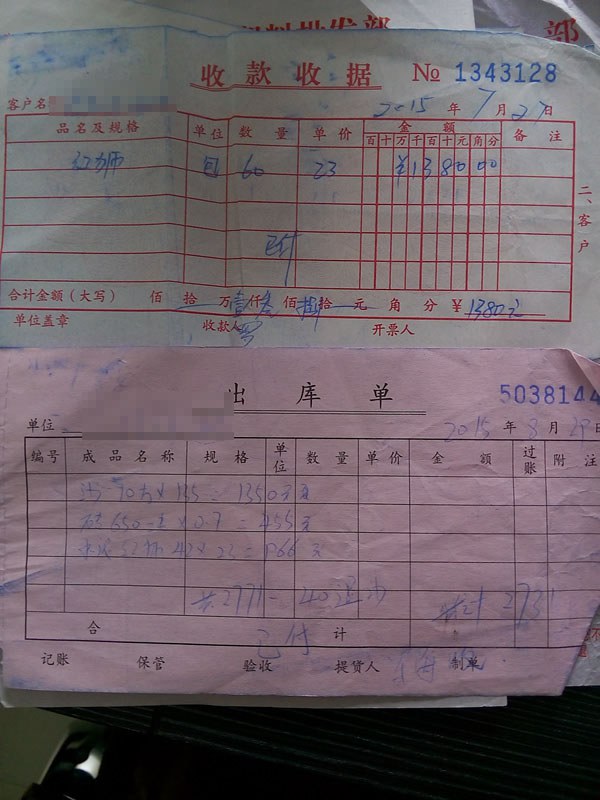 部
收款收据 № 1343128
客户名
2015 年 7 月 27 日
品名及规格 单位 数量 单价 金额 备注
百 十 万 千 百 十 元 角 分
包 60 23 ¥1380 00
二、客户
合计金额（大写） 佰 拾 万 壹 仟 叁 佰 捌 拾 元 角 分 ¥ 1380元
单位盖章 收款人 开票人
出库单 5038144
单位 2015 年 8 月 29 日
编号 成品名称 规格 单位 数量 单价 金额 过账 附注
10方×135=1350元
砖650一支×0.7=455元
42×23=966元
共2771-40 共计2731
合计
已付
记账 保管 验收 提货人 制单